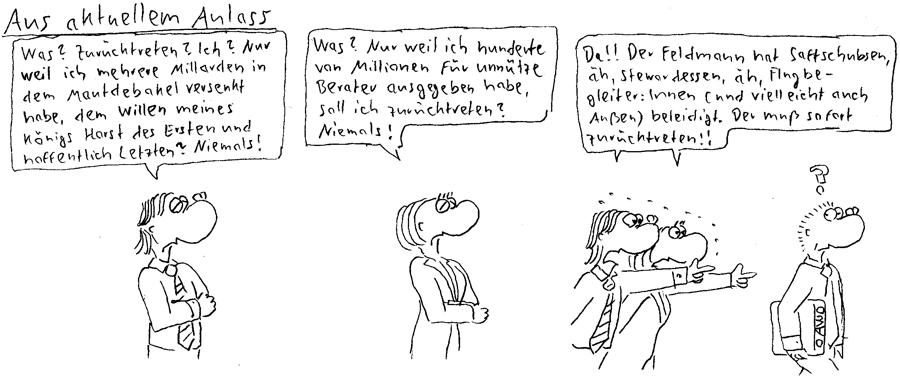 Aus aktuellem Anlass
Was? Zurücktreten? Ich? Nur
weil ich mehrere Millarden in
dem Mautdebakel versenkt
habe, dem Willen meines
Königs Horst des Ersten und
hoffentlich Letzten? Niemals!
Was? Nur weil ich hunderte
von Millionen für unnütze
Berater ausgegeben habe,
soll ich zurücktreten?
Niemals!
Da!! Der Feldmann hat Saftschubsen,
äh, Stewardessen, äh, Flugbe-
gleiter:Innen (und vielleicht auch
Außen) beleidigt. Der muß sofort
zurücktreten!!
?
AWO